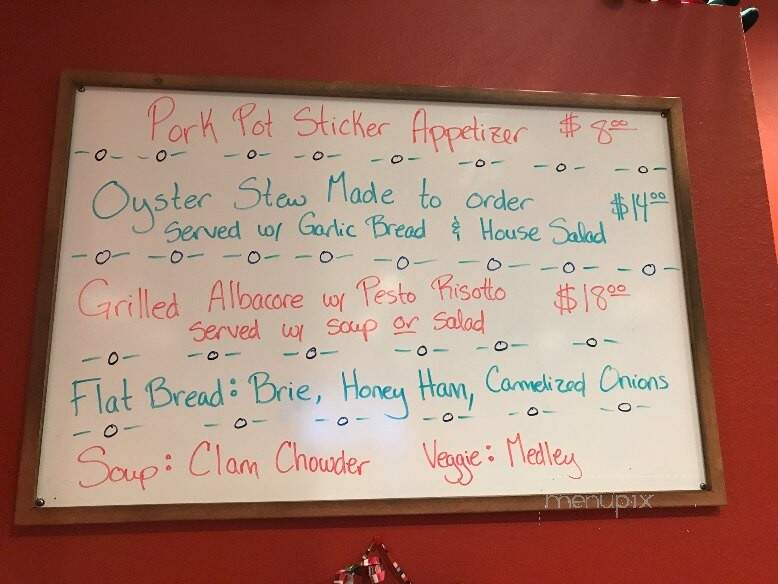 Pork Pot Sticker Appetizer $8.00
Oyster Stew Made to order $14.00
Served w/ Garlic Bread & House Salad
Grilled Albacore w/ Pesto Risotto $18.00
Served w/ soup or Salad
Flat Bread: Brie, Honey Ham, Carmelized Onions
Soup: Clam Chowder Veggie: Medley
menupix